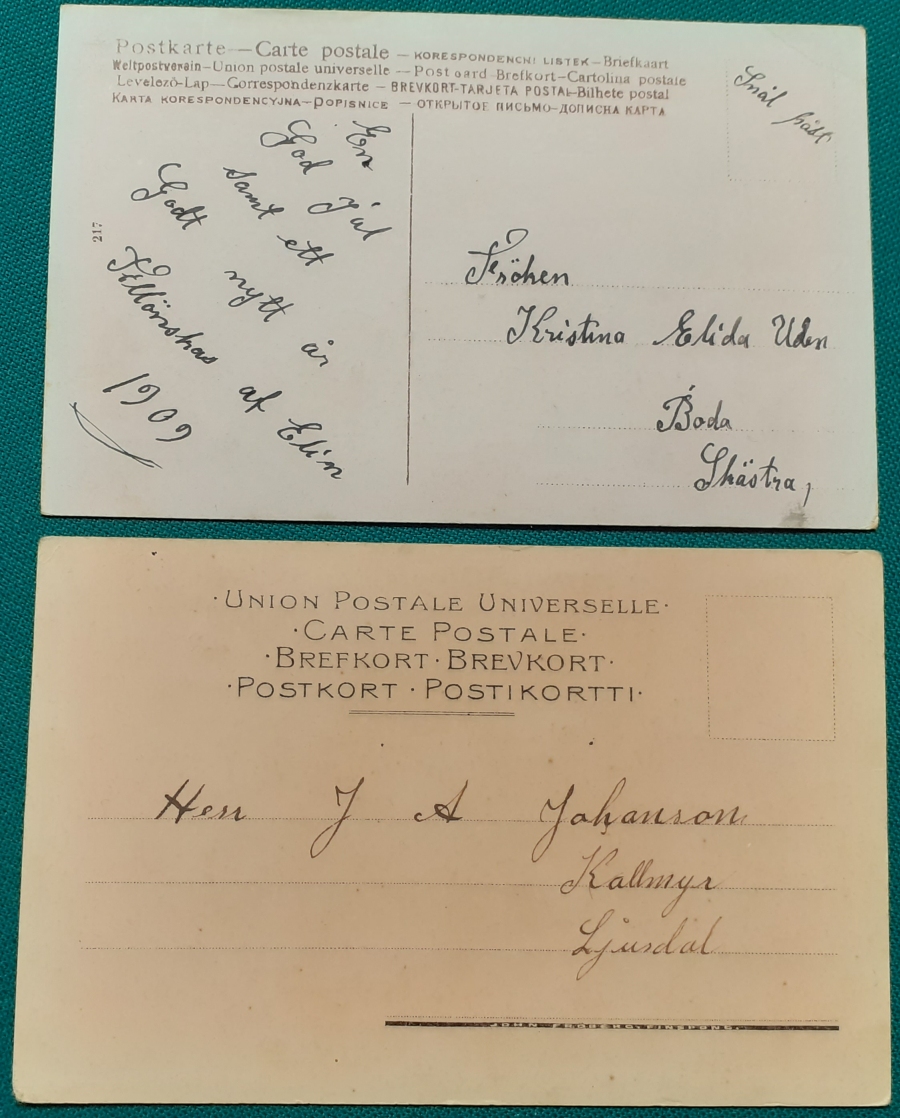 Postkarte — Carte postale — KORESPONDENCNI LISTEK — Briefkaart
Weltpostverein — Union postale universelle — Post card Brefkort — Cartolina postale
Levelező-Lap — Correspondenzkarte — BREVKORT — TARJETA POSTAL — Bilhete postal
KARTA KORESPONDENCYJNA — DOPISNICE — ОТКРЫТОЕ ПИСЬМО — ДОПИСНА КАРТА
Snäl påst
En
God Jul
samt ett
Godt nytt år
Tillönskas af Elin
1909
217
Fröken
Kristina Elida Uden
Boda
Skästra,
·UNION POSTALE UNIVERSELLE·
·CARTE POSTALE·
·BREFKORT·BREVKORT·
·POSTKORT·POSTIKORTTI·
Herr J A Johanson
Kallmyr
Ljusdal
JOHN FRÖBERG, FINSPONG.